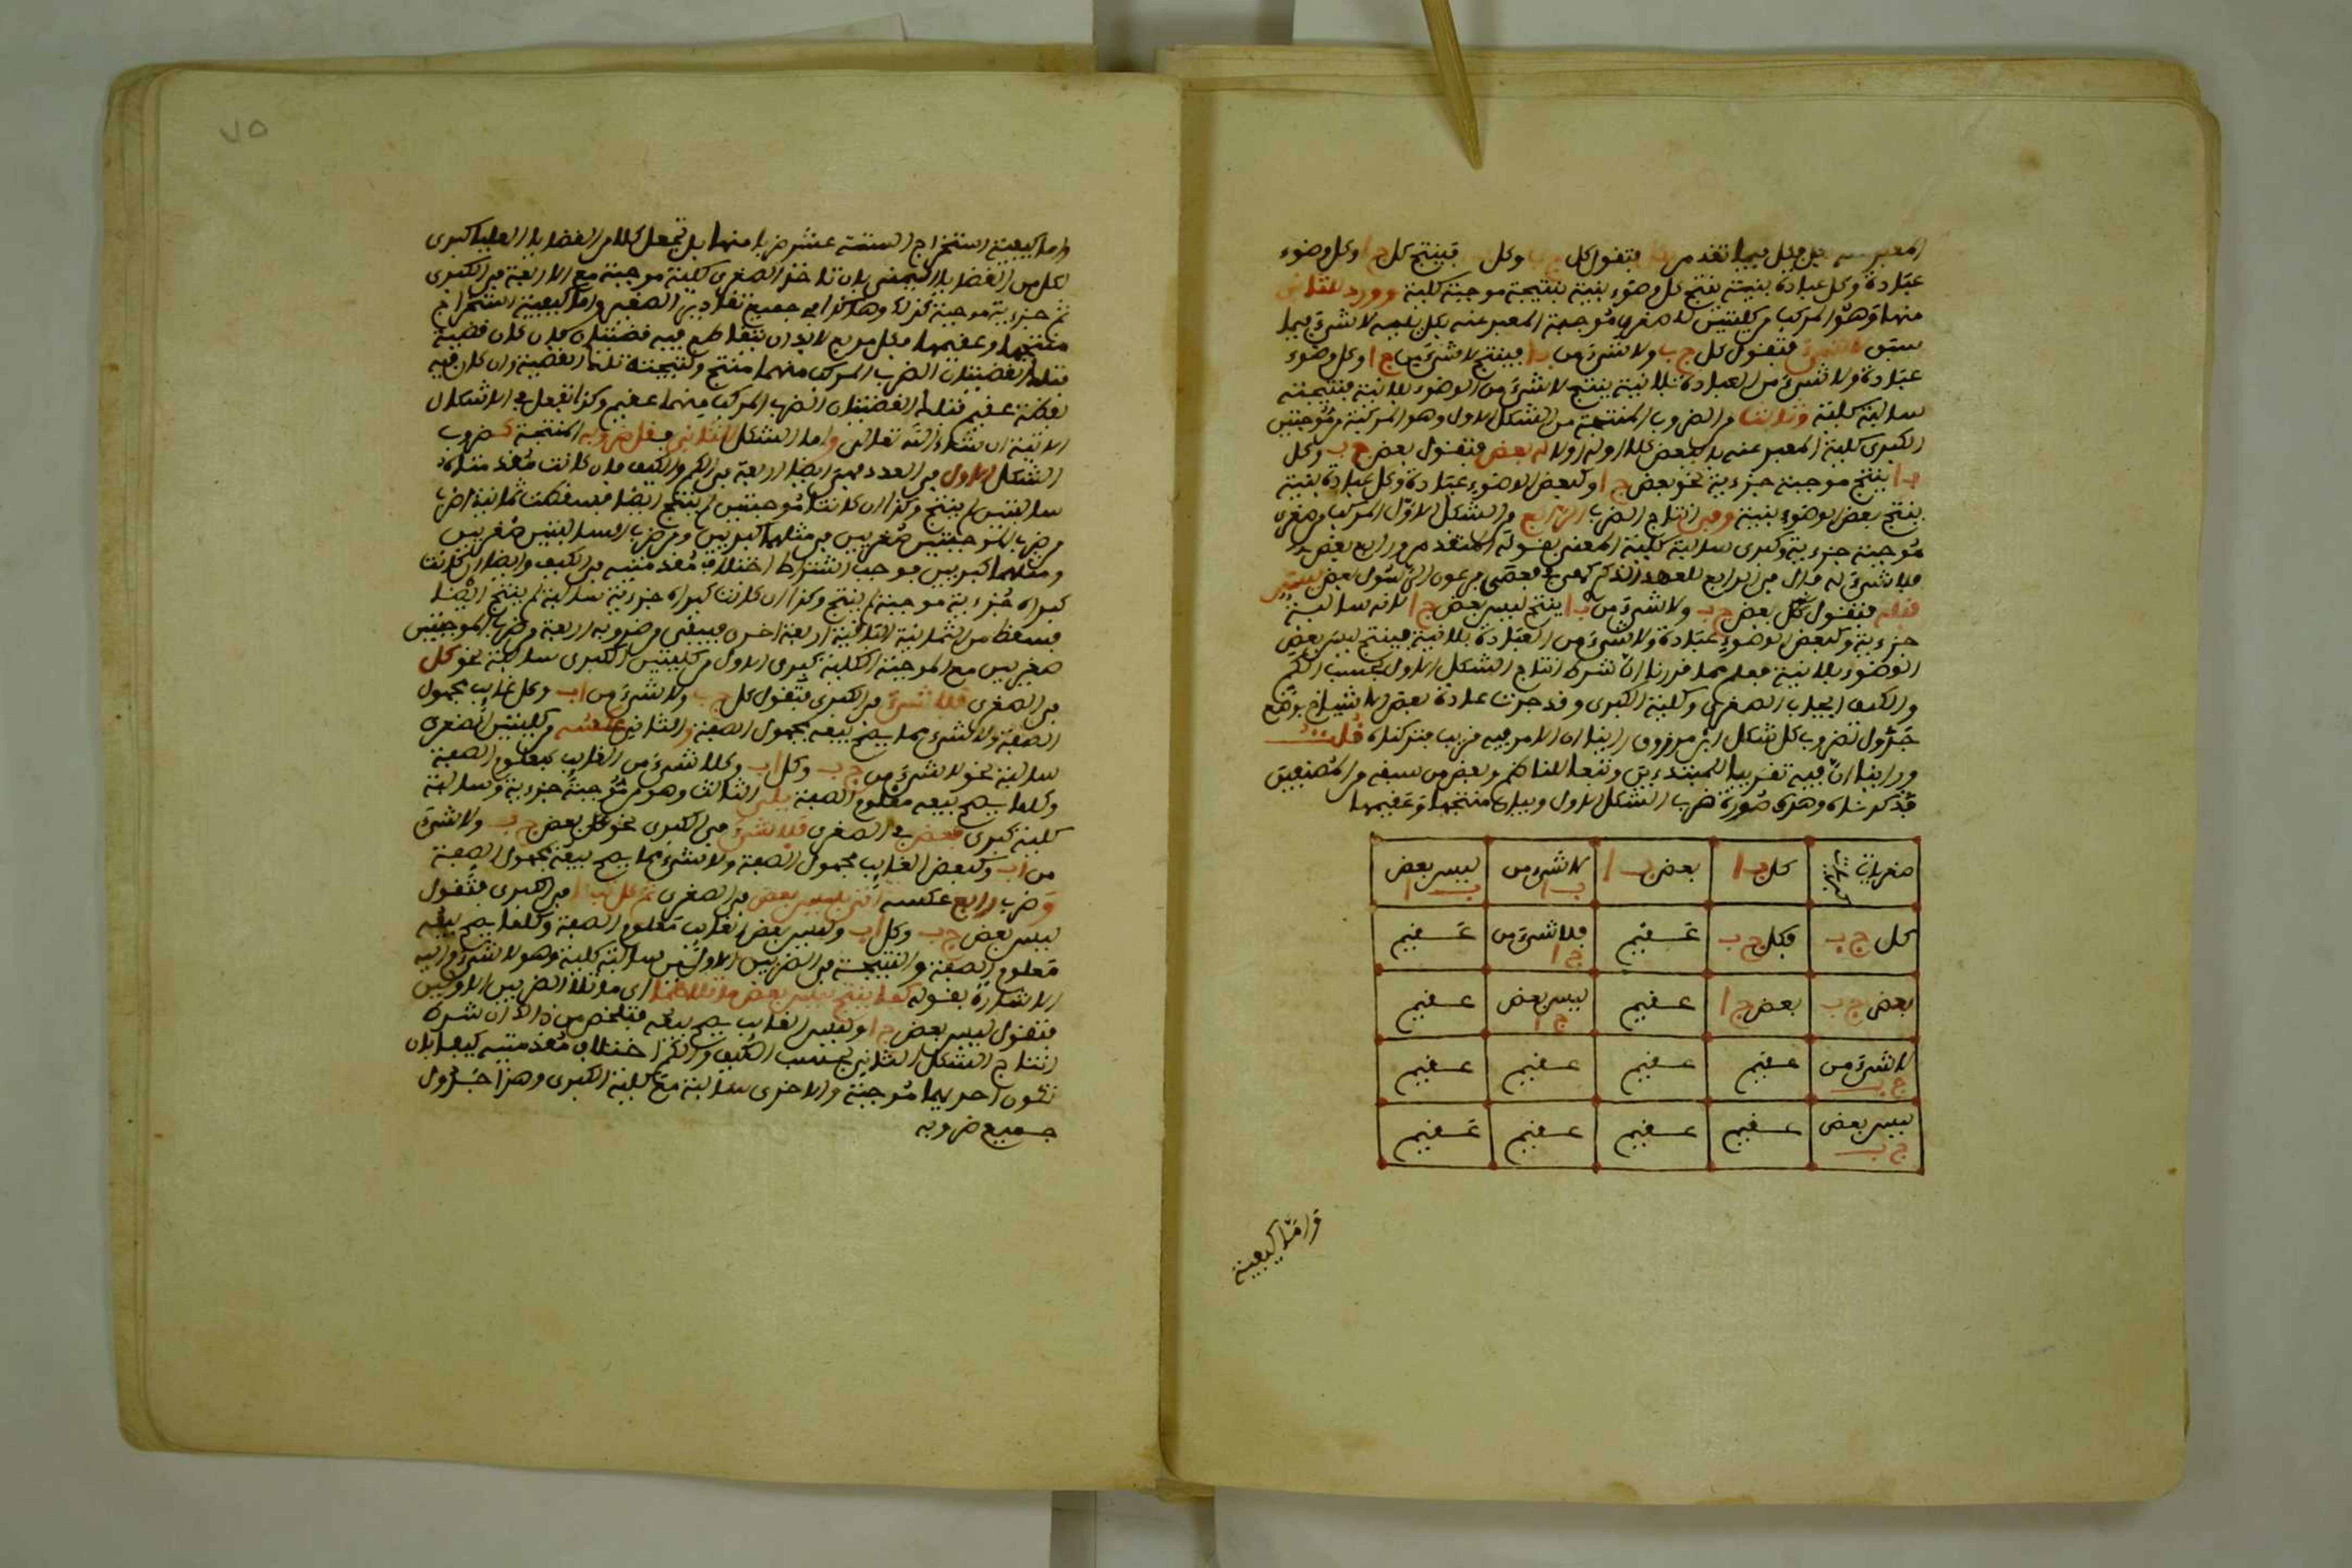 عبادة وكل عبادة بنية ينتج كل وضوء بنية بنتيجة موجبة كلية وورد للثاني
منها وهو المركب من كليتين لاكن صغرى موجبة المعبر عنه بكل تليه لا شيء فيما
سبق لا شيء فتقول كل ج ب ولا شيء من ب ا فينتج لا شيء من ج ا وكل وضوء
عبادة ولا شيء من العبادة بلا نية ينتج لا شيء من الوضوء بلا نية فنتيجته
سالبة كلية وثالثها من الضروب المنتجة من الشكل الاول وهو المركب من موجبتين
الكبرى كلية المعبر عنه ببعض فتقول بعض ج ب وكل
ب ا ينتج موجبة جزءية نحو بعض ج ا وكبعض الوضوء عبادة وكل عبادة بنية
ينتج بعض الوضوء بنية وفي انتاج الضرب الرابع من الشكل الاول المركب من صغرى
موجبة جزءية وكبرى سالبة كلية المعنى بقوله المتقدم ورابع بعض يرد
فلا شيء له قال في الرابع للعهد الذكري كهي في فعصى فرعون الرسول بعض ليس
فتقول بعض ج ب ولا شيء من ب ا ينتج ليس بعض ج ا لانه سالبة
جزءية وكبعض الوضوء عبادة ولا شيء من العبادة بلا نية فينتج ليس بعض
الوضوء بلا نية فعلم مما قررنا ان شرط انتاج الشكل الاول بحسب الكم
والكيف ايجاب الصغرى وكلية الكبرى وقد جرت عادة بعض الاشياخ بوضع
جدول لضروب كل شكل ابن مرزوق راينا ان الامر فيه قريب فتركناه قلت
وراينا ان فيه تقريبا للمبتدءين وتبعا للناظم وبعض من سبقه من المصنفين
فذكرناه وهذه صورة ضرب الشكل الاول وبيان منتجها وعقيمها
صغريات كل ب ا بعض ب ا لا شيء من ب ا ليس بعض ب ا
كل ج ب فكل ج ب عقيم فلا شيء من ج ا عقيم
بعض ج ب بعض ج ا عقيم ليس بعض ج ا عقيم
لا شيء من ج ب عقيم عقيم عقيم عقيم
ليس بعض ج ب عقيم عقيم عقيم عقيم
واما كيفية
٧٥
واما كيفية استخراج الستة عشر ضربا منها بان تجعل كلا من القضايا العليا كبرى
لكل من القضايا اليمنى بان تاخذ الصغرى كلية موجبة مع الاربعة من الكبرى
ثم جزءية موجبة كذلك وهكذا في جميع تقادير الصغرى واما كيفية استخراج
منتجها وعقيمها فكل مربع لابد ان يتقاطع فيه قضيتان فان كان قضية
فتلك القضيتان الضرب المركب منهما منتج ونتيجته تلك القضية وان كان فيه
لفظة عقيم فتلك القضيتان الضرب المركب منهما عقيم وكذا تفعل في الاشكال
الاتية ان شاء الله تعالى واما الشكل الثاني فقل ضروبه المنتجة كضروب
الشكل الاول في العدد فهي ايضا اربعة في الكم والكيف فان كانت مقدمتاه
سالبتين لم ينتج وكذا ان كانتا موجبتين لم ينتج ايضا فسقطت ثمانية اضرب
من ضرب الموجبتين صغريين في مثلهما كبريين ومن ضرب السالبتين صغريين
ومثلهما كبريين فوجب اشتراط اختلاف مقدمتيه في الكيف وايضا ان كانت
كبراه جزءية موجبة لم ينتج وكذا ان كانت كبراه جزءية سالبة لم ينتج ايضا
فسقط من الثمانية الباقية اربعة اخرى فيبقى من ضروبه اربعة من ضرب الموجبتين
صغريين مع الموجبة الكلية كبرى الاول من كليتين الكبرى سالبة نحو كل
في الصغرى فلا شيء في الكبرى فتقول كل ج ب ولا شيء من ا ب وكل غايب مجهول
الصفة ولا شيء مما يصح بيعه بمجهول الصفة والثاني عكسه من كليتين الصغرى
سالبة نحو لا شيء من ج ب وكل ا ب وكلا شيء من الغايب بمعلوم الصفة
وكلما يصح بيعه معلوم الصفة يلي الثالث وهو من موجبة جزءية وسالبة
كلية كبرى فبعض في الصغرى فلا شيء في الكبرى نحو بعض ج ب ولا شيء
من ا ب وكبعض الغايب مجهول الصفة ولا شيء مما يصح بيعه بمجهول الصفة
وضرب رابع عكسه اتى بليس بعض في الصغرى ثم كل ب ا في الكبرى فتقول
ليس بعض ج ب وكل ا ب وليس بعض الغايب معلوم الصفة وكلما يصح بيعه
معلوم الصفة والنتيجة في الضربين الاولين سالبة كلية وهو لا شيء واليه
الاشارة بقوله كما ينتج ليس بعض ما تلاهما اي ما تلا الضربين الاولين
فتقول ليس بعض ج ا وليس الغايب يصح بيعه فتلخص من ذلك ان شرط
انتاج الشكل الثاني بحسب الكيف والكم اختلاف مقدمتيه كيفا بان
تكون احديهما موجبة والاخرى سالبة مع كلية الكبرى وهذا جدول
جميع ضروبه